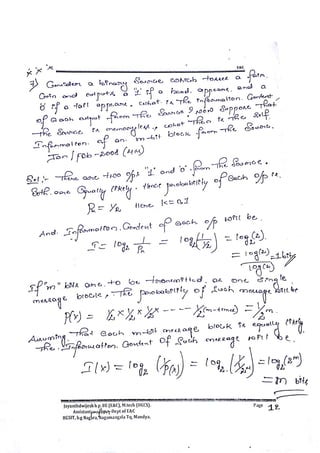 * * *
7) Consider a binary Source which tosses a fair
Coin and outputs a '1' if a head appears and a
'0' if a tail appears. what is the information Content
of each output from the Source? Suppose that
the Source is memoryless, what then is the self
Information of an m-bit block from the Source.
Jan/Feb-2008 (4M)
Sol:- There are two o/ps '1' and '0' from the Source.
Both are Equally likely. Probability of each o/p is.
Pk = 1/2 Here k=0,1
And. Information. Content of each o/p will be.
I = log2 1/Pk = log2 (1/(1/2)) = log2(2).
= log(2)/log(2) = 1 bits
If "m" bits are to be transmitted as one single
message block, The probability of such message will be
P(x) = 1/2 × 1/2 × 1/2 × ---- × 1/2 (m-times) = 1/2^m.
Assuming that Each m-bit message block is equally likely
The Information Content of such message will be.
I(x) = log2 (1/P(x)) = log2 (1/(1/2^m)) = log2(2^m)
= m bits
Page 12